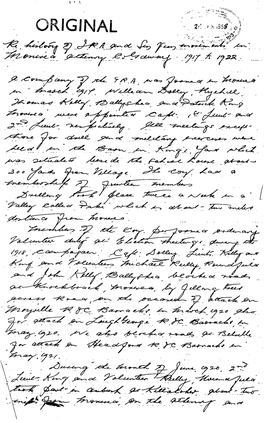 ORIGINAL
The history of I.R.A. and Sinn Fein movements in
Monivea, Athenry, Co Galway. 1917 to 1922.
A Company of the I.R.A. was formed in Monivea
in March 1917. William Dolly,
Thomas Kelly, Ballyphea, and Patrick King
Monivea were appointed Capt., 1st Lieut and
2nd Lieut respectively. All meetings except
those for drill and military exercises were
held in the Barn in King's Yard which
was situated beside the School house about
300 Yards from Village. The Coy. had a
membership of members
Drilling took place twice a week in a
Valley called which is about two miles
distance from Monivea.
Members of the Coy performed ordinary
Volunteer duty at Election meetings during the
1918, Campaign. Capt. Dolly, Lieut Kelly and
King and Volunteers Michael Reilly,
and John Kelly Ballyphea, blocked roads
at Knockbrack, Monivea, by felling trees
across Roads, on the occasion of attack on
Moyville R.I.C. Barracks, in March 1920 also
for attack on Loughgeorge R.I.C. Barracks, in
May, 1920. We also blocked roads at
for attack on Headford R.I.C. Barracks in
May, 1921.
During the month of June 1920, 2nd
Lieut. King and Volunteer Reilly,
took part in ambush at about two
miles from Monivea, on the Athenry and